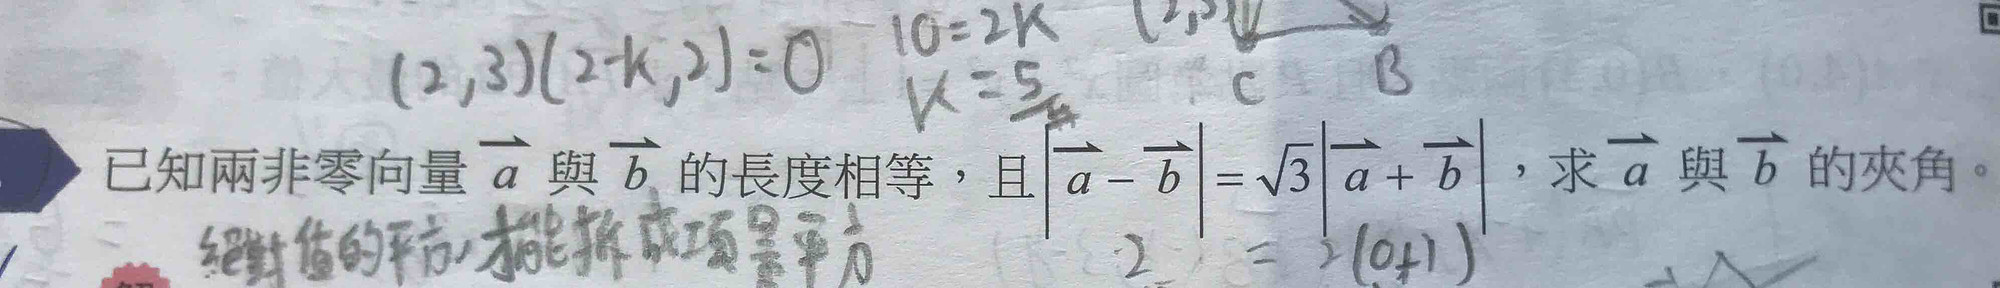 (2,3)(2-k,2)=0
10=2K
K=5/4
(2,3)
C B
已知兩非零向量 a 與 b 的長度相等，且 | a − b | = √3 | a + b |，求 a 與 b 的夾角。
絕對值的平方，才能拆成項量平方
2 = 2(0+1)